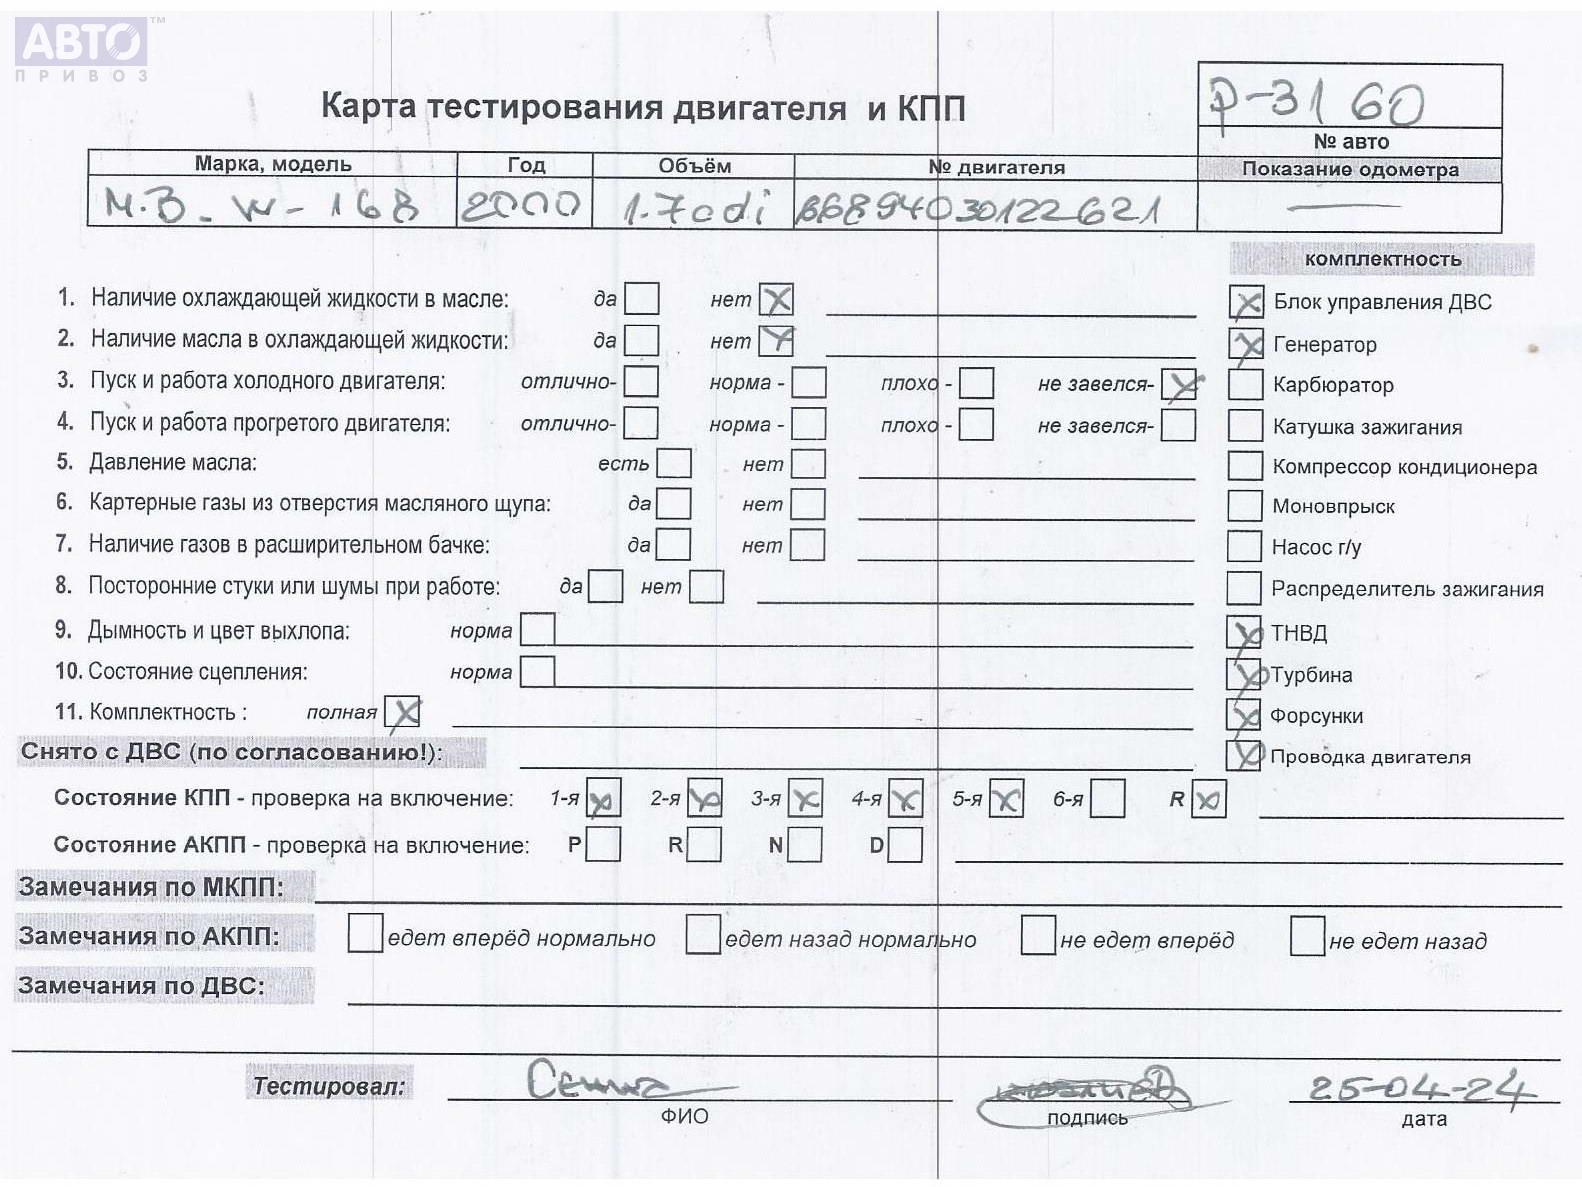 АВТО™
ПРИВОЗ
Карта тестирования двигателя и КПП
P-3160
№ авто
Марка, модель Год Объём № двигателя Показание одометра
M.B. W-168 2000 1.7cdi 66894030122621 —
комплектность
1. Наличие охлаждающей жидкости в масле: да нет X Блок управления ДВС X
2. Наличие масла в охлаждающей жидкости: да нет X Генератор X
3. Пуск и работа холодного двигателя: отлично- норма - плохо - не завелся- X Карбюратор
4. Пуск и работа прогретого двигателя: отлично- норма - плохо - не завелся- Катушка зажигания
5. Давление масла: есть нет Компрессор кондиционера
6. Картерные газы из отверстия масляного щупа: да нет Моновпрыск
7. Наличие газов в расширительном бачке: да нет Насос г/у
8. Посторонние стуки или шумы при работе: да нет Распределитель зажигания
9. Дымность и цвет выхлопа: норма X ТНВД
10. Состояние сцепления: норма X Турбина
11. Комплектность : полная X X Форсунки
Снято с ДВС (по согласованию!): X Проводка двигателя
Состояние КПП - проверка на включение: 1-я X 2-я X 3-я X 4-я X 5-я X 6-я R X
Состояние АКПП - проверка на включение: P R N D
Замечания по МКПП:
Замечания по АКПП: едет вперёд нормально едет назад нормально не едет вперёд не едет назад
Замечания по ДВС:
Тестировал: 25-04-24
ФИО подпись дата